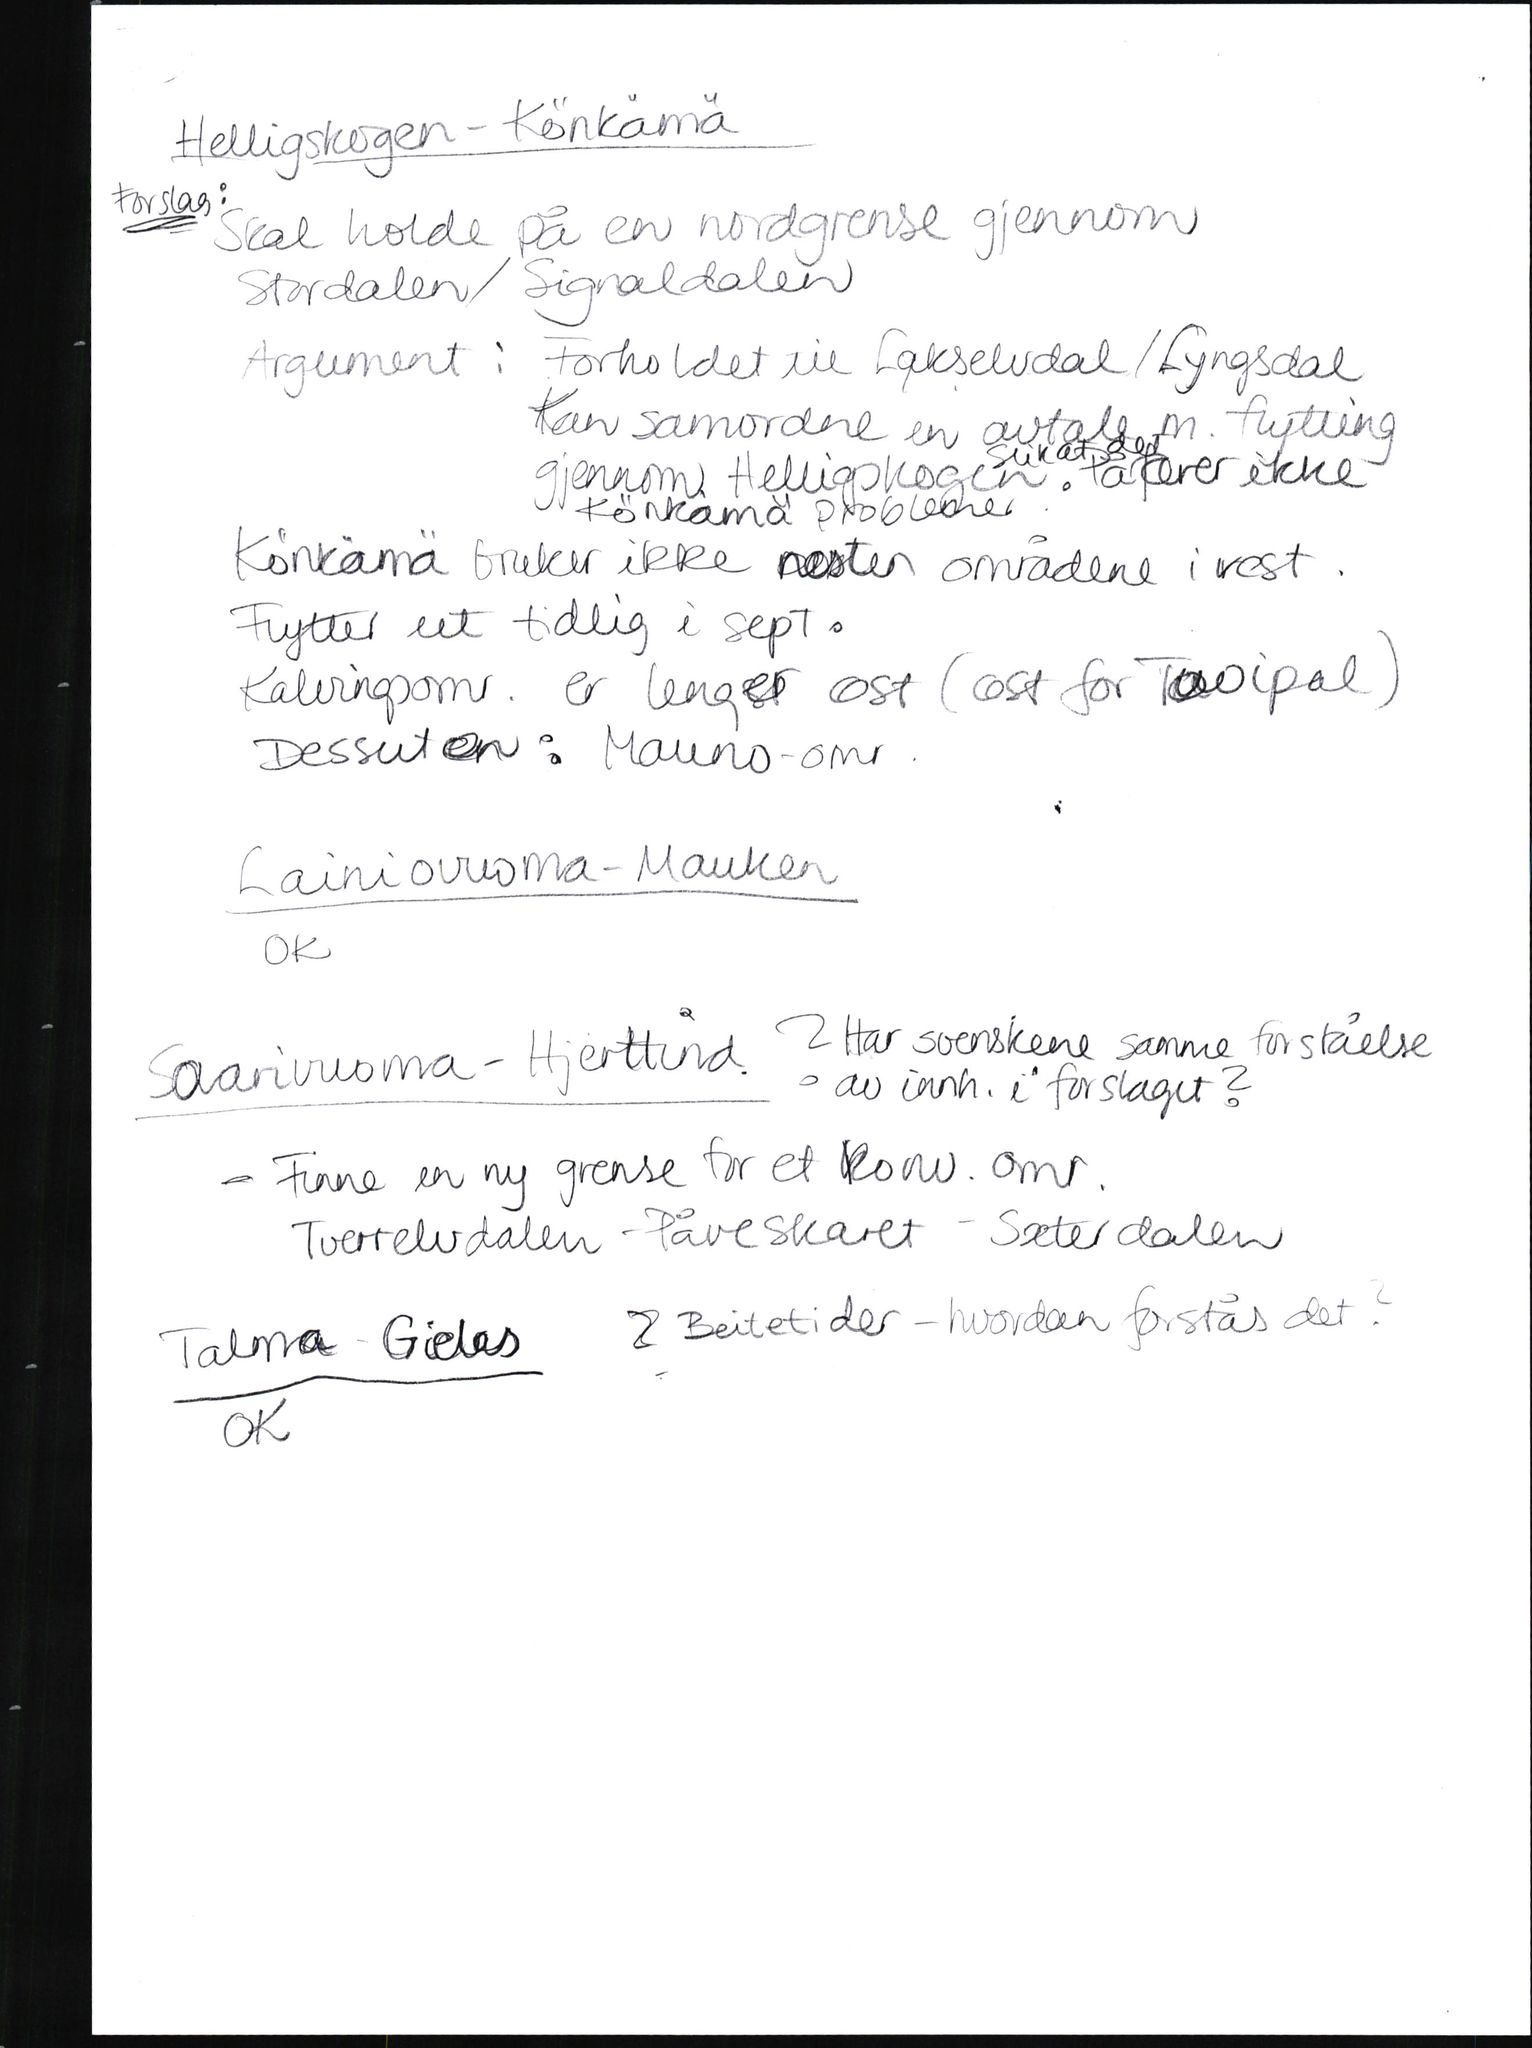 Helligskogen - Könkämä
Forslag:
Skal holde på en nordgrense gjennom
Stordalen / Signaldalen
Argument : Forholdet til Lakselvdal / Lyngsdal
Kan samordne en avtale m. flytting
gjennom Helligskogen. slik at det påfører ikke
Könkämä problemer.
Könkämä bruker ikke nesten områdene i vest.
Flytter ut tidlig i sept.
Kalvingsomr. er lenger øst (øst for
Dessuten : Mauno-omr.
Lainiovuoma - Mauken
OK
Saarivuoma - Hjerttind. ? Har svenskene samme forståelse
av innh. i forslaget?
- Finne en ny grense for et konv. omr.
Tverrelvdalen - Påveskaret - Sæterdalen
Talma - Gielas ? Beitetider - hvordan forstås det?
OK